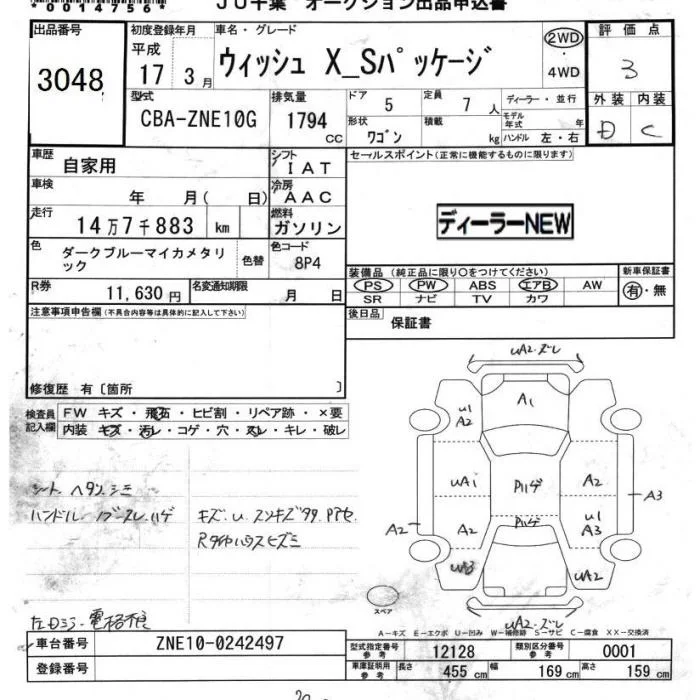 *0014756*
JU千葉 オークション出品申込書
出品番号
3048
初度登録年月
平成
17 3月
車名・グレード
ウィッシュ X_Sパッケージ
2WD
・
4WD
評価点
3
外装 内装
D C
型式
CBA-ZNE10G
排気量
1794
CC
ドア
5
定員
7 人
形状
ワゴン
積載
kg
ディーラー・並行
モデル年式 年
ハンドル 左・右
車歴
自家用
シフト
IAT
車検
年 月( 日)
冷房
AAC
走行
14万7千883 km
燃料
ガソリン
色
ダークブルーマイカメタリック
色替
色コード
8P4
R券
11,630円
名変通知期限
月 日
セールスポイント(正常に機能するものに限ります)
ディーラーNEW
装備品(純正品に限り○をつけてください)
PS PW ABS エアB AW
SR ナビ TV カワ
新車保証書
有・無
後日品
保証書
注意事項申告欄(不具合内容等は具体的に記入して下さい)
修復歴 有〔箇所 〕
検査員記入欄
FW キズ・飛石・ヒビ割・リペア跡・×要
内装 キズ・汚レ・コゲ・穴・スレ・キレ・破レ
シート ヘタシミ
ハンドル ハゲ
キズ
左Dミラー電格不良
uA2.ズレ
A1
u1
A2
uA1
Pハゲ
A2
A3
A2
A2
Pハゲ
u1
A3
uA3
uA2
uA2.ズレ
スペア
A-キズ E-エクボ U-凹み W-補修跡 S-サビ C-腐食 XX-交換済
車台番号
ZNE10-0242497
登録番号
型式指定番号 参考
12128
類別区分番号 参考
0001
車庫証明用 参考
長さ 455 cm
幅 169 cm
高さ 159 cm